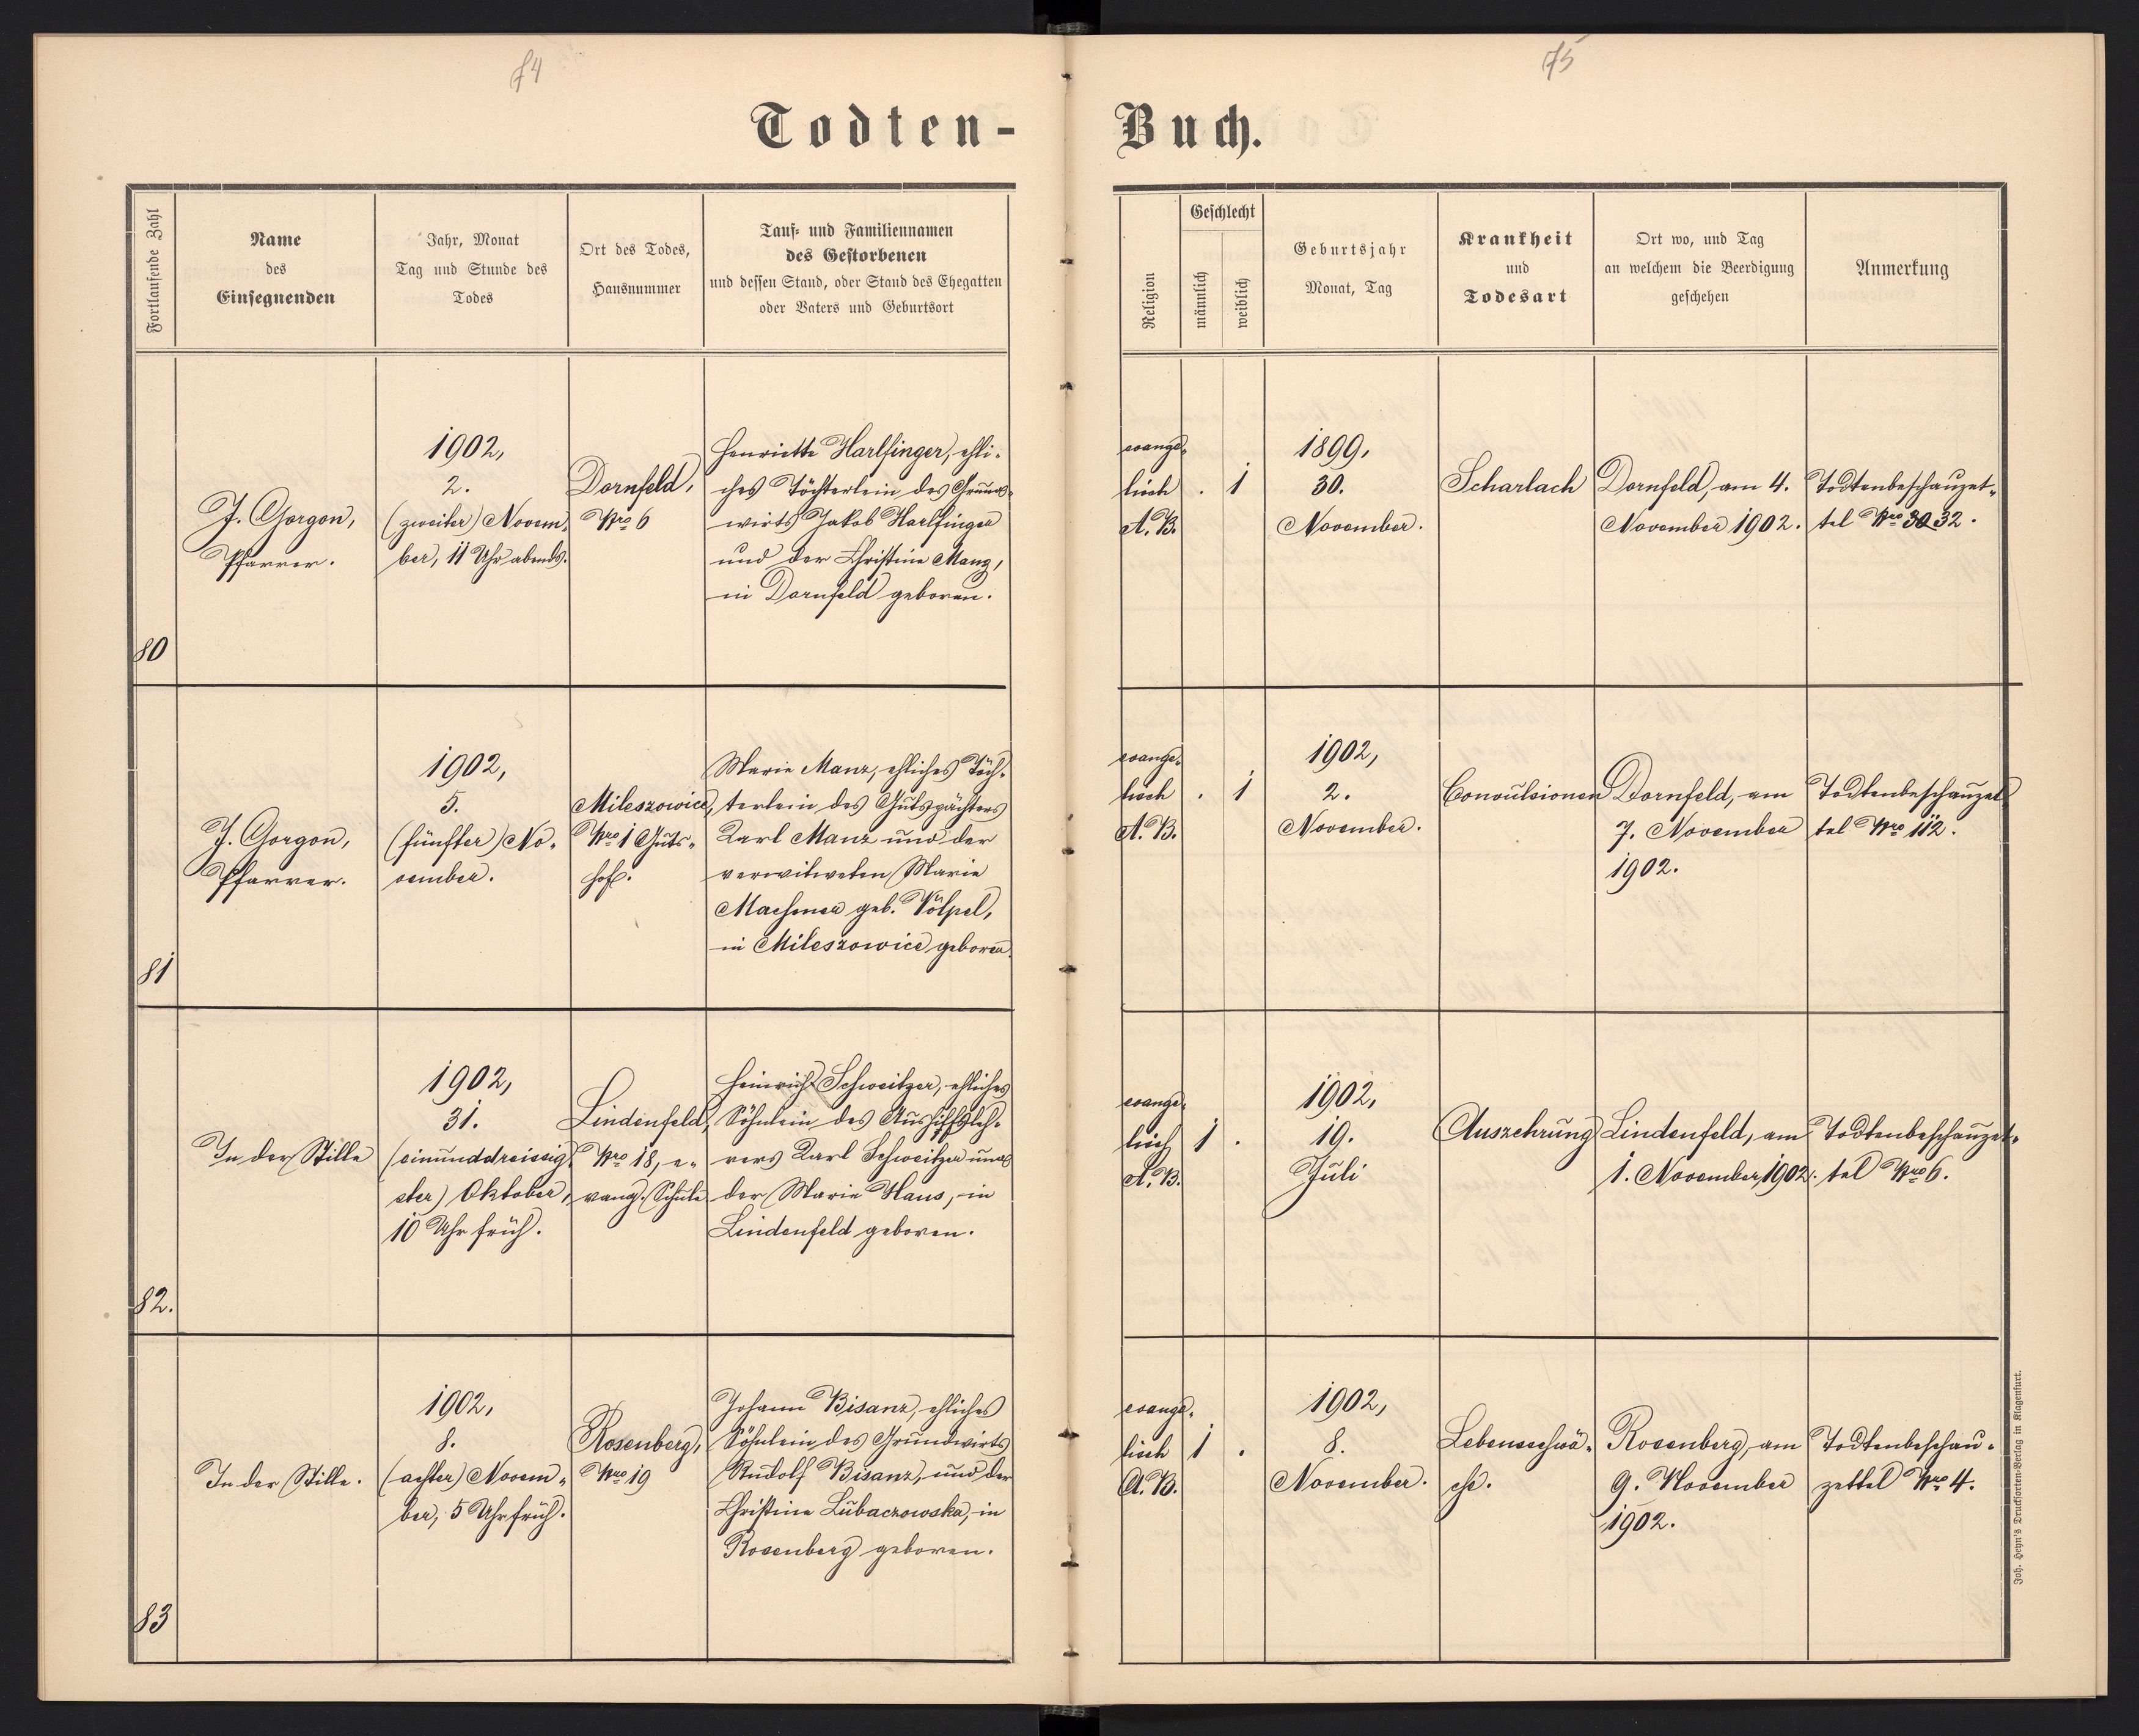 74
75
Todten-
Buch.
Fortlaufende Zahl
Name
des
Einsegnenden
Jahr, Monat
Tag und Stunde des
Todes
Ort des Todes,
Hausnummer
Tauf- und Familiennamen
des Gestorbenen
und dessen Stand, oder Stand des Ehegatten
oder Vaters und Geburtsort
Religion
Geschlecht
männlich
weiblich
Geburtsjahr
Monat, Tag
Krankheit
und
Todesart
Ort wo, und Tag
an welchem die Beerdigung
geschehen
Anmerkung
80
J. Gorgon,
Pfarrer.
1902,
2.
(zweiter) Novem-
ber, 11 Uhr abends.
Dornfeld,
Nro 6
Henriette Harlfinger, ehli-
ches Töchterlein des Grund-
wirts Jakob Harlfinger
und der Christine Manz,
in Dornfeld geboren.
evange-
lisch
A. B.
. 1
1899,
30.
November.
Scharlach
Dornfeld, am 4.
November 1902.
Todtenbeschauzet-
tel Nro 32.
81
J. Gorgon,
Pfarrer.
1902,
5.
(fünfter) No-
vember.
Mileszowice,
Nro 1 Guts-
hof.
Marie Manz, ehliches Töch-
terlein des Gutspächters
Karl Manz und der
verwitweten Marie
Machmer geb. Völpel,
in Mileszowice geboren.
evange-
lisch
A. B.
. 1
1902,
2.
November.
Convulsionen
Dornfeld, am
7. November
1902.
Todtenbeschauzet-
tel Nro 112.
82.
In der Stille
1902,
31.
(einunddreissig-
ster) Oktober,
10 Uhr früh.
Lindenfeld,
Nro 18, e-
vang. Schule
Heinrich Schweitzer, ehliches
Söhnlein des Aushilfsleh-
rers Karl Schweitzer und
der Marie Haus, in
Lindenfeld geboren.
evange-
lisch
A. B.
1 .
1902,
19.
Juli
Auszehrung
Lindenfeld, am
1. November, 1902.
Todtenbeschauzet-
tel Nro 6.
83
In der Stille.
1902,
8.
(achter) Novem-
ber, 5 Uhr früh.
Rosenberg,
Nro 19
Johann Bisanz, ehliches
Söhnlein des Grundwirts
Rudolf Bisanz, und der
Christine Lubaczowska, in
Rosenberg geboren.
evange-
lisch
A. B.
1 .
1902,
8.
November.
Lebensschwä-
che.
Rosenberg, am
9. November
1902.
Todtenbeschau-
zettel Nro 4.
Joh. Heyn's Drucksorten-Verlag in Klagenfurt.